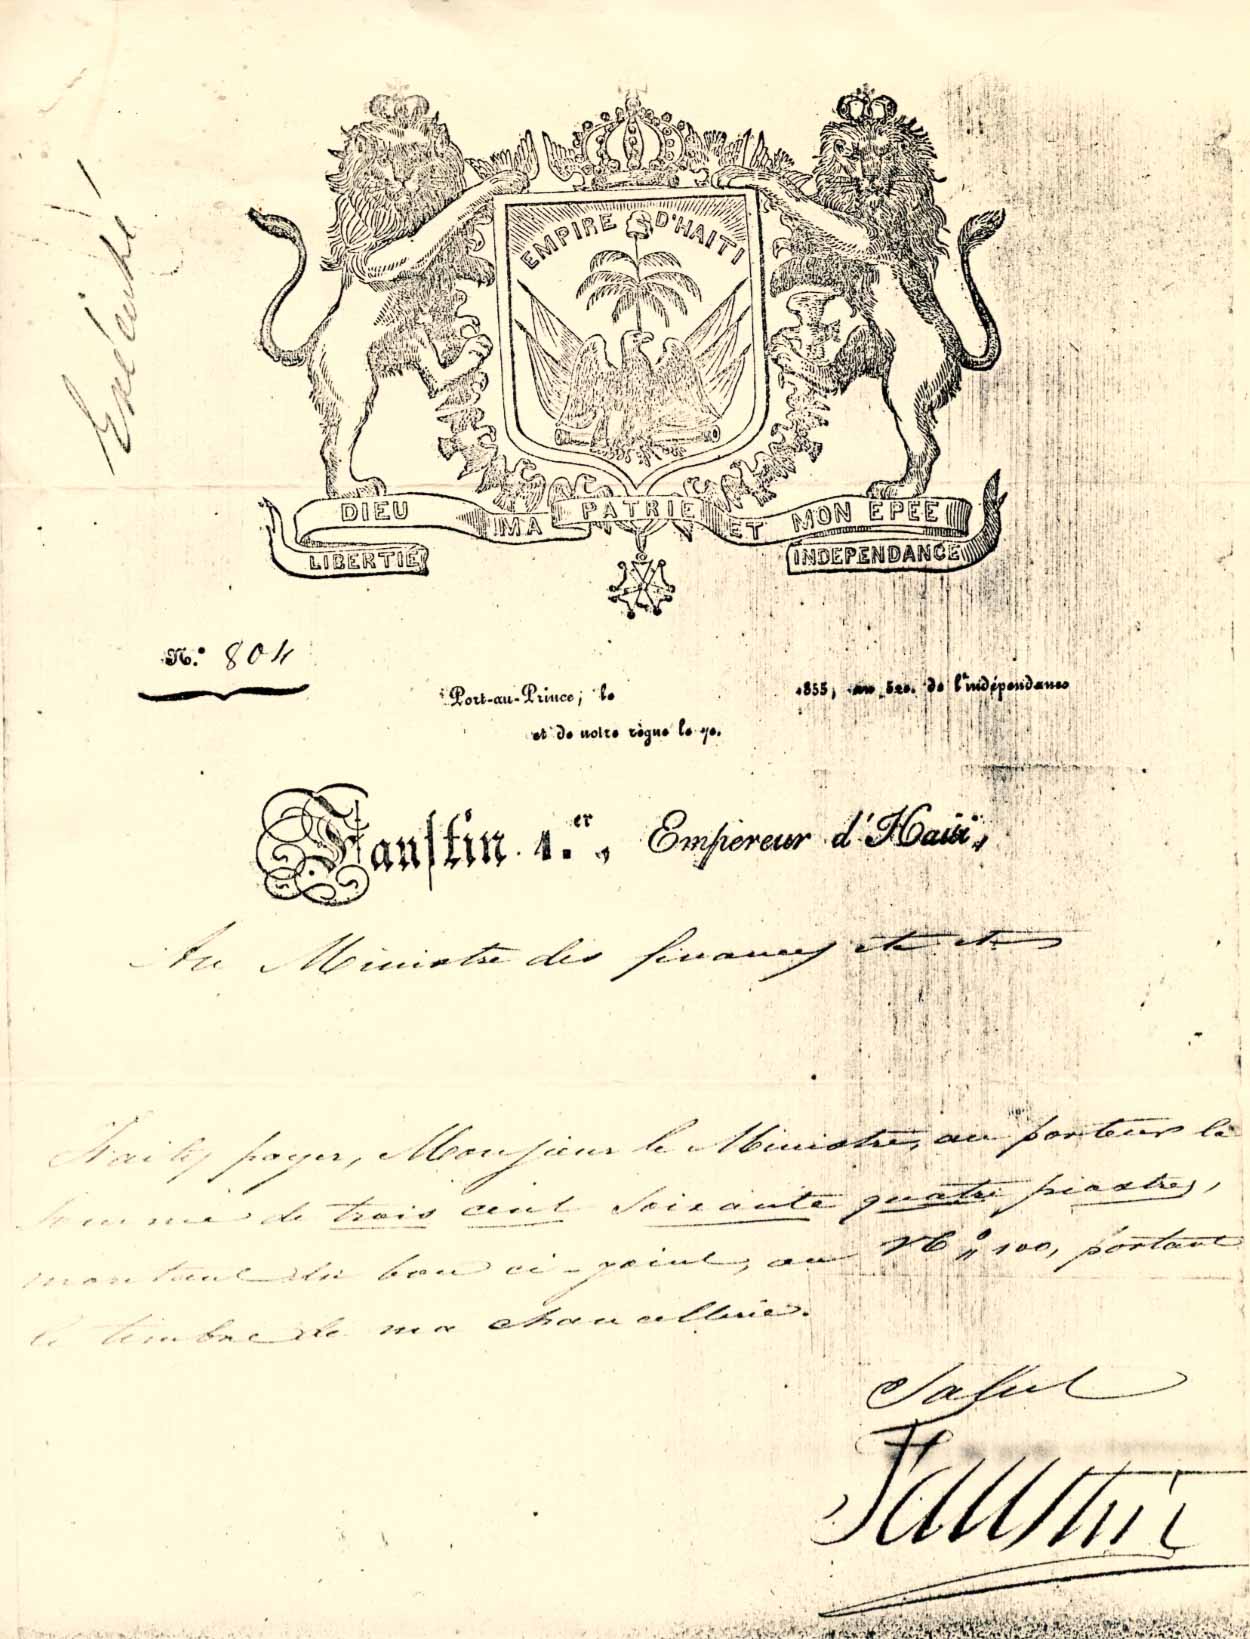 Exécuté
EMPIRE D'HAITI
DIEU MA PATRIE ET MON EPEE
LIBERTIE INDEPENDANCE
N.º 804
Port-au-Prince, le 1855, an 52e. de l'indépendance
et de notre règne le 7e.
Faustin 1.er, Empereur d'Haïti,
Au Ministre des finances etc etc
Faites payer, Monsieur le Ministre, au porteur la
somme de trois cent soixante quatre piastres,
montant du bon ci-joint, au Nº 100, portant
le timbre de ma chancellerie.
Salut
Faustin